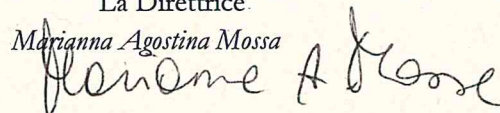 La Direttrice
Marianna Agostina Mossa
Marianna A Mossa